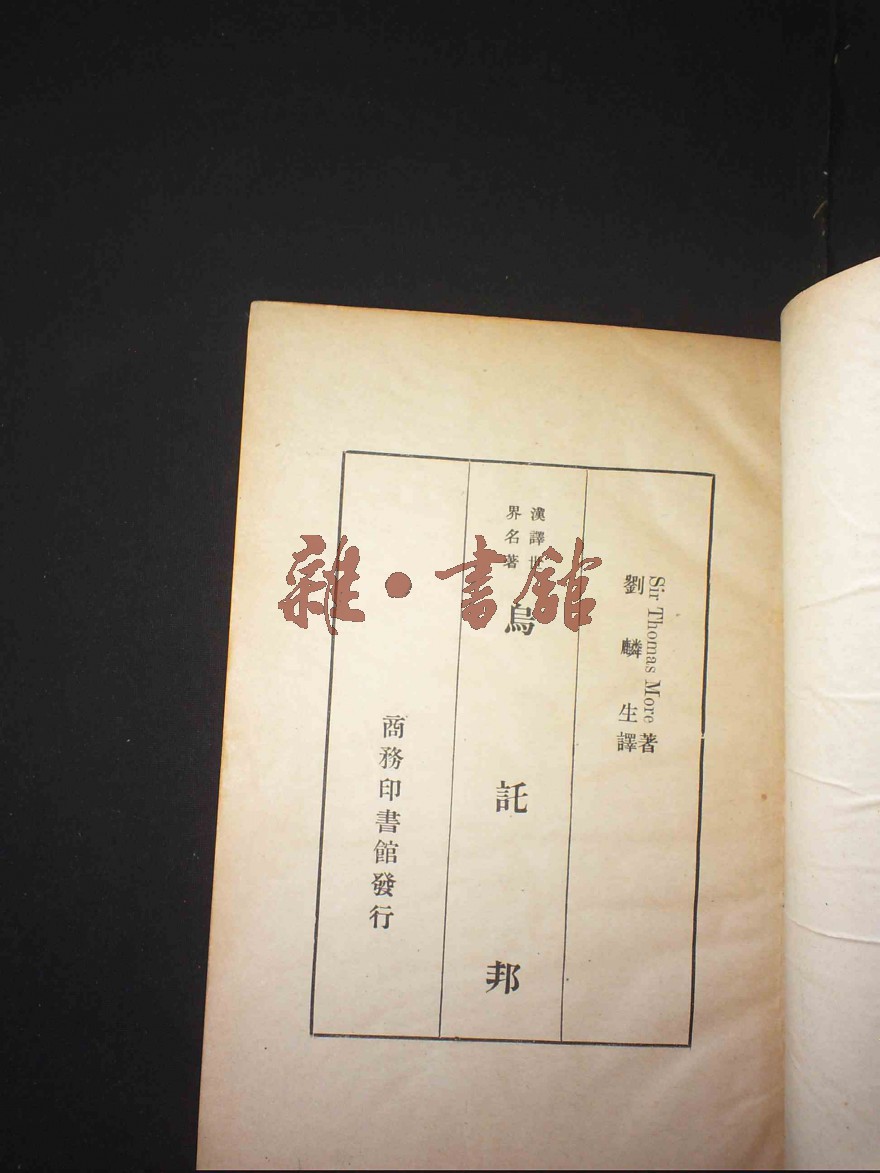 Sir Thomas More 著
劉麟生譯
漢譯世
界名著
烏託邦
商務印書館發行
雜·書館